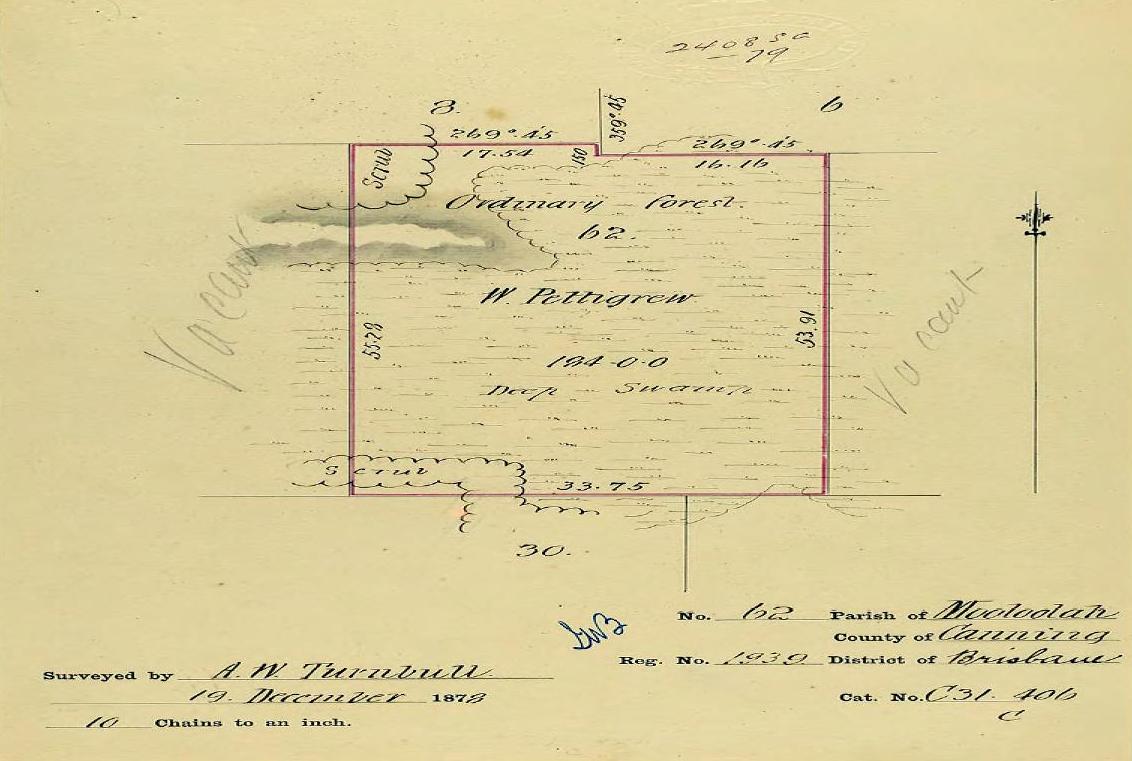 24085a
79
8.
6
359°.45
269°.45
269°.45
17.54
150
16.16
Scrub
Ordinary Forest.
62.
Vacant
W. Pettigrew
Vacant
55.28
53.91
184-0-0
Deep Swamp
Scrub
33.75
30.
No. 62 Parish of Mooloolah
County of Canning
Reg. No. 1939 District of Brisbane
Surveyed by A. W. Turnbull
19. December 1878
Cat. No. C31. 406
C
10 Chains to an inch.